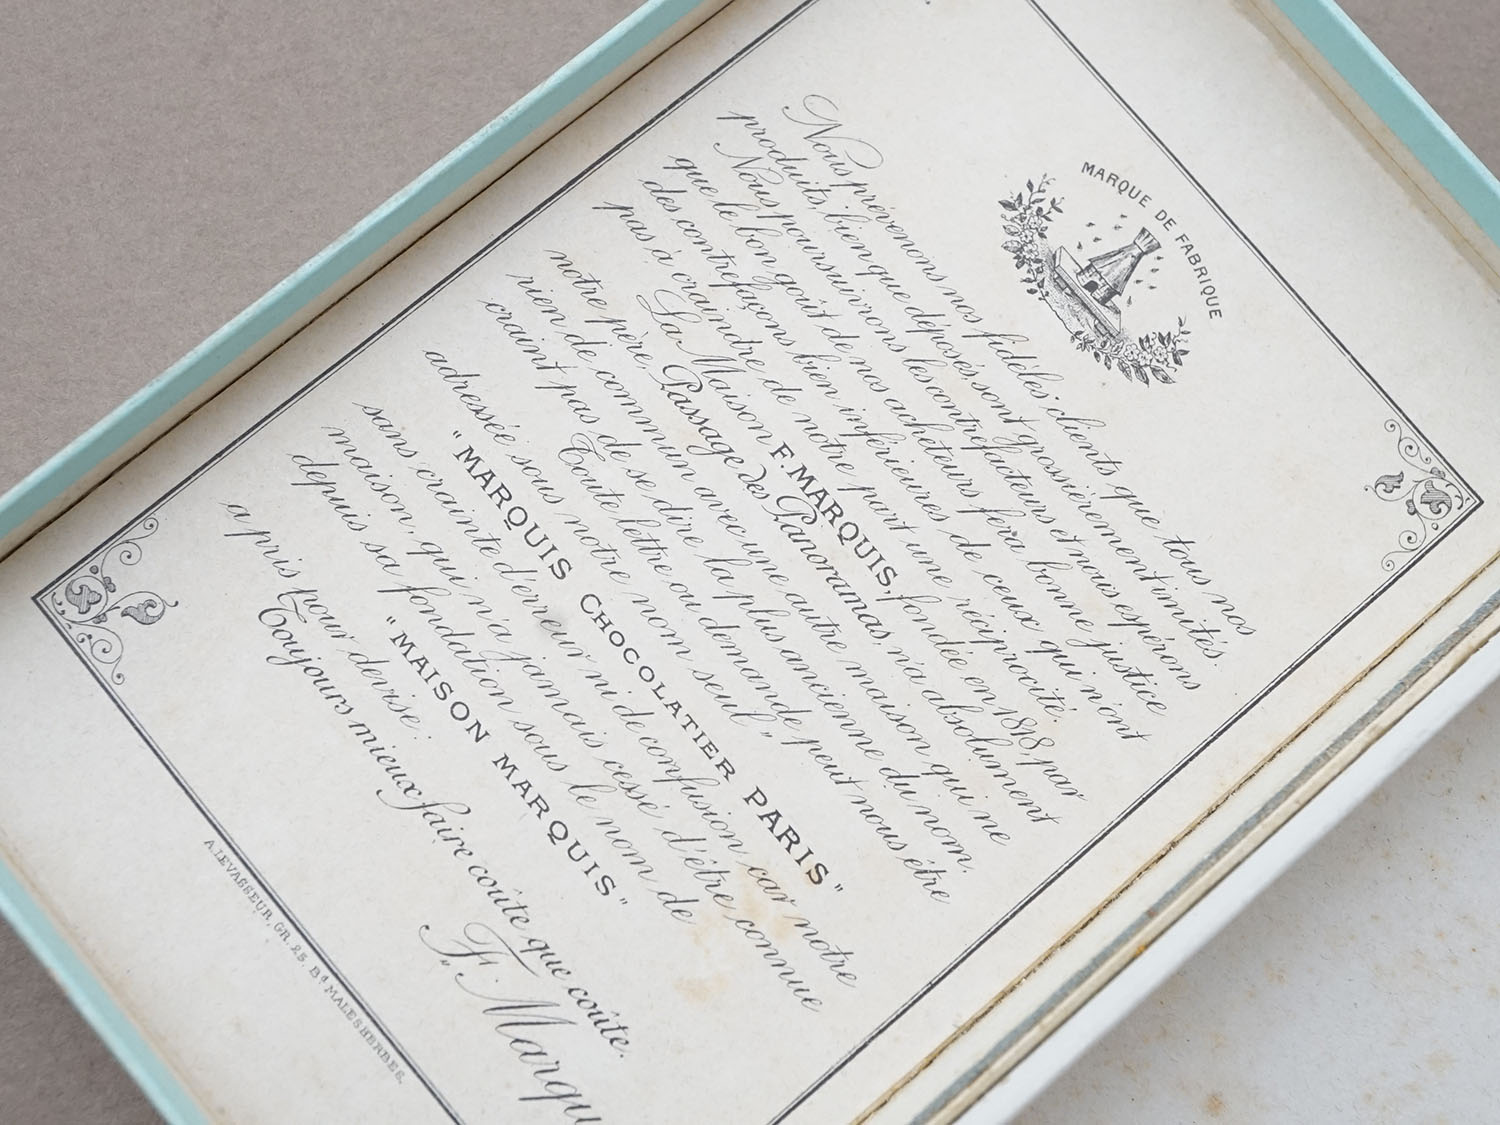 MARQUE DE FABRIQUE
Nous prévenons nos fidèles clients que tous nos
produits, bien que déposés, sont grossièrement imités.
Nous poursuivrons les contrefacteurs et nous espérons
que le bon goût de nos acheteurs fera bonne justice
des contrefaçons bien inférieures de ceux qui n'ont
pas à craindre de notre part une réciprocité.
La Maison F. MARQUIS, fondée en 1818, par
notre père, Passage des Panoramas, n'a absolument
rien de commun avec une autre maison qui ne
craint pas de se dire la plus ancienne du nom.
Toute lettre ou demande, peut nous être
adressée sous notre nom seul "
"MARQUIS CHOCOLATIER PARIS"
sans crainte d'erreur ni de confusion car notre
maison, qui n'a jamais cessé d'être connue
depuis sa fondation sous le nom de
"MAISON MARQUIS"
a pris pour devise:
Toujours mieux faire coûte que coûte.
F. Marqu
A. LEVASSEUR, GR. 25. Bd MALESHERBES.